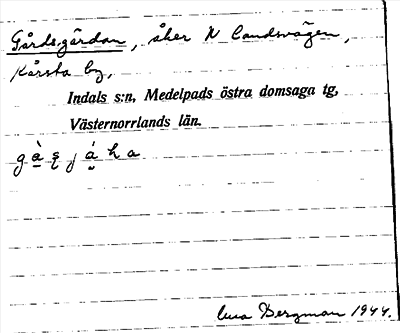 Gårds.gärdan, åker N landsvägen,
Kårsta by,
Indals s:n, Medelpads östra domsaga tg,
Västernorrlands län.
Bergman 1944.